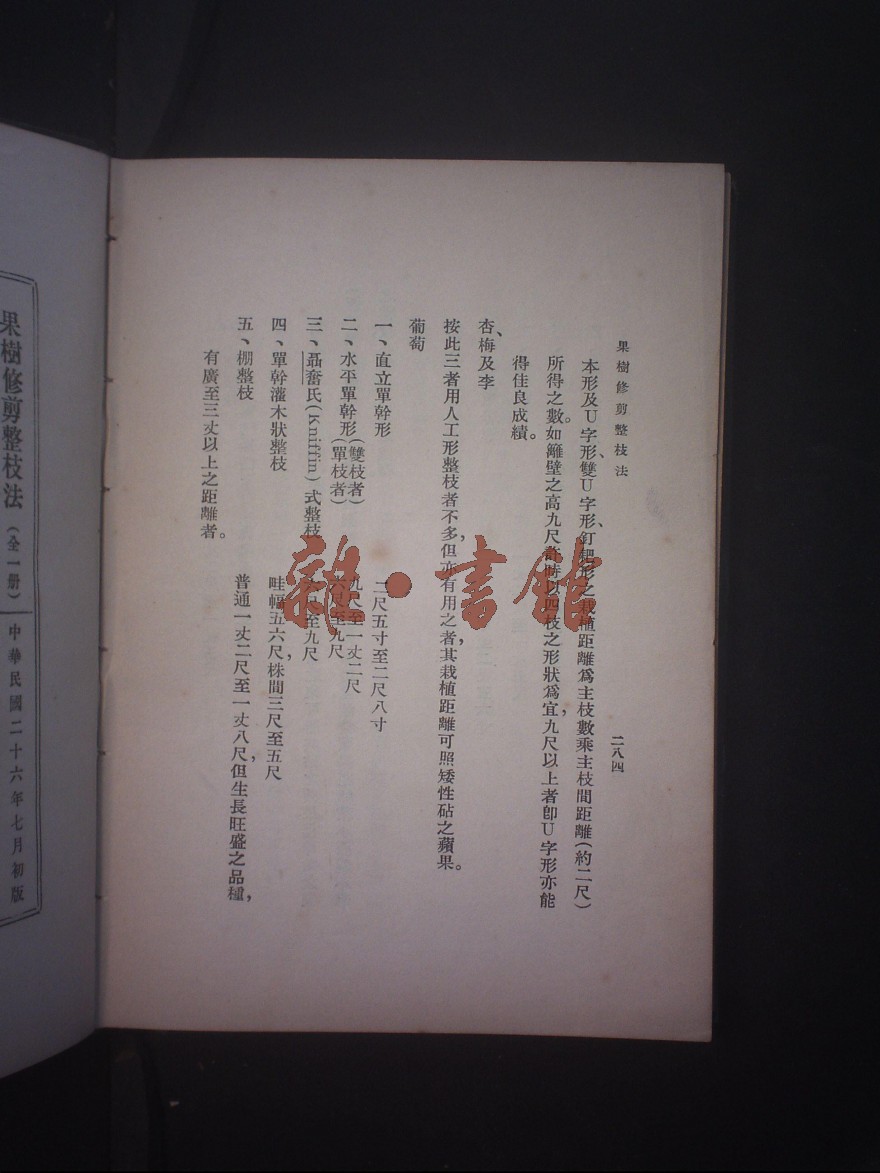 果樹修剪整枝法
二八四
本形及U字形、雙U字形、釘耙形之栽植距離爲主枝數乘主枝間距離(約二尺)
所得之數。如籬壁之高九尺許時以四枝之形狀爲宜,九尺以上者卽U字形亦能
得佳良成績。
杏、梅及李
按此三者用人工形整枝者不多,但亦有用之者,其栽植距離可照矮性砧之蘋果。
葡萄
一、直立單幹形 二尺五寸至二尺八寸
二、水平單幹形(雙枝者) 九尺至一丈二尺
(單枝者) 六尺至九尺
三、聶奮氏(Kniffin)式整枝 尺至九尺
四、單幹灌木狀整枝 畦幅五六尺,株間三尺至五尺
五、棚整枝 普通一丈二尺至一丈八尺,但生長旺盛之品種,
有廣至三丈以上之距離者。
果樹修剪整枝法(全一册)
中華民國二十六年七月初版
雜·書館